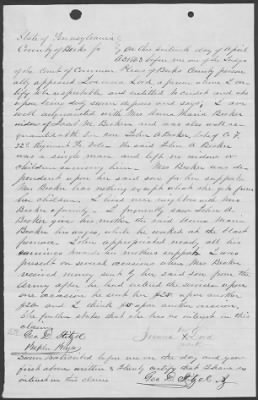 State of Pennsylvania
County of Berks ss On this tenth day of April
AD 1863 before me one of the Judge
of the Court of Common Pleas of Berks County person
ally appeared Lovina Lord a person whom I cer
tify to be respectable and entitled to credit and who
upon being duly sworn deposes and says, I am
well acquainted with Mrs Anna Maria Booker
widow of Booker and was also well ac
quainted with her son John A Booker late of Co
Regiment Pa Vols. The said John A. Booker
was a single man and left no widow or
children surviving him. Mrs Booker was de
pendent upon her said son for her support.
Mrs Booker has nothing except what she gets from
her children. I lived near neighbor with Mrs
Booker's family. I frequently saw John A.
Booker give his mother the said Anna Maria
Booker his wages, while he worked at the blast
furnace. John appropriated nearly all his
earnings towards his mother's support. I was
present on several occasions when Mrs Booker
received money sent by her said son from the
Army after he had entered the service upon
one occasion he sent her $25 upon another
$20 and I think $5 upon another occasion.
She further states that she has no interest in this
claim
Geo D. Stitzel
her
mark
Sworn & subscribed before me on the day and year
first above written & I hereby certify that I have no
interest in this claim
Geo D. Stitzel